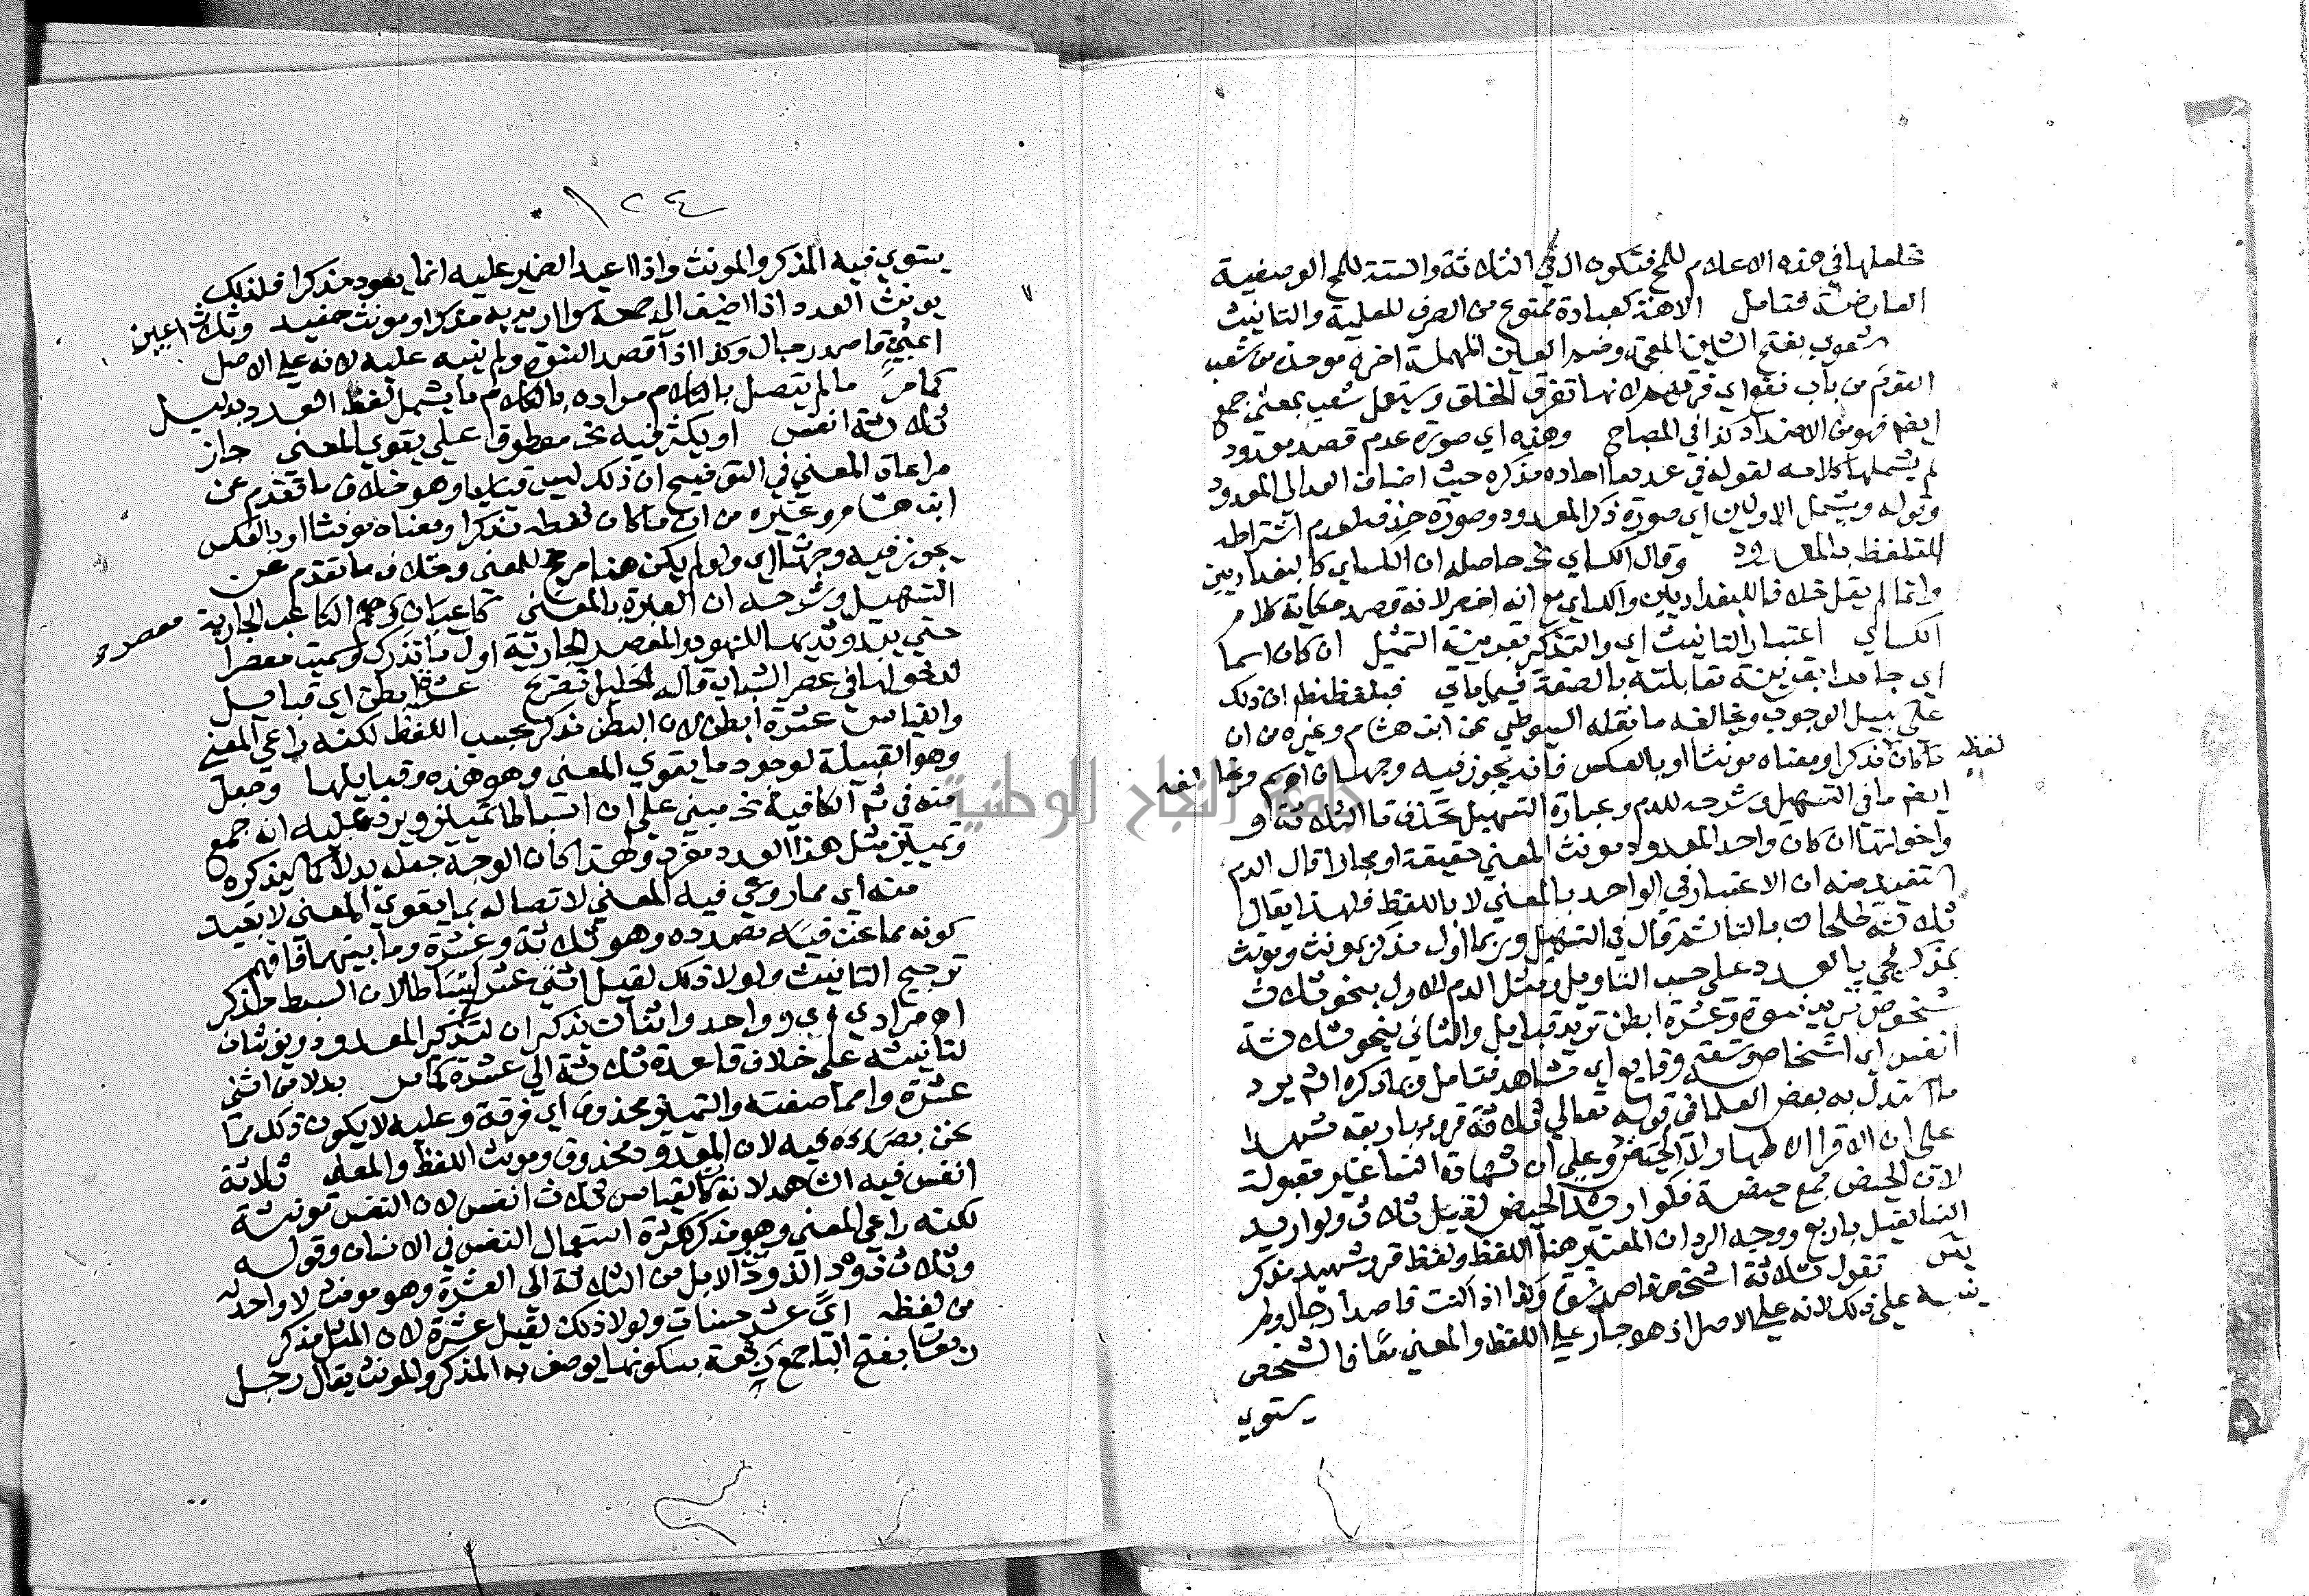 فى هذه الاعلام للمح فتكون ال في الثلاثة والستة للمح الوصفية
العارضة فتامل الاهة كعبادة ممنوع من الصرف للعلمية والتانيث
شعوب بفتح الشين المعجمة وضم العين المهملة اخره موحدة من شعب
القوم من باب نفع اي فرقهم لانها تفرق الخلق ويستعمل شعب بمعنى جمع
ايضا فهو من الاضداد كذا في المصباح وهذه اي صورة عدم قصد معدود
لم يشملها كلامه لقوله في عد ما احاده مذكره حيث اضاف العد الى المعدود
وقوله ويشمل الاولين اي صورة ذكر المعدود وصورة حذفه لعدم اشتراطه
التلفظ بالمعدود وقال الكساي الخ حاصله ان الكساي كالبغداديين
وانما لم يقل خلافا للبغداديين والكساي مع انه اخصر لانه قصد حكاية كلام
الكساي اعتبار التانيث اي والتذكير بقرينة التمثيل ان كان اسما
اي جامدا بقرينة مقابلته بالصفة فيما ياتي فبلفظه ان ذلك
على سبيل الوجوب ويخالفه ما نقله السيوطي عن ابن هشام وغيره من ان
ما كان لفظه مذكرا ومعناه مونثا او بالعكس فانه يجوز فيه وجهان اهم ويخالفه
ايضا ما في التسهيل وشرحه للدم وعبارة التسهيل تحذف تا الثلاثة و
واخواتها ان كان واحد المعدود مونث المعنى حقيقة او مجازا قال الدم
استفيد منه ان الاعتبار في الواحد بالمعنى لا باللفظ فلهذا يقال
ثلاثة طلحات بالتا ثم قال في التسهيل وربما اول مذكر بمونث ومونث
بمذكر فجي بالعدد على حسب التاويل ومثل الدم للاول بنحو ثلاث
شخوص تريد نسوة وعشرة ابطن تريد قبايل والثاني بنحو ثلاثة
انفس اي اشخاص وتسعة وقايع اي مشاهد فتامل وبما ذكره الشم يرد
ما استدل به بعض العلما في قوله تعالى ثلاثة قروء باربعة شهدا
على ان الاقرا الاطهار لا الحيض وعلى ان شهادة النسا غير مقبولة
لان الحيض جمع حيضة فلو اريد الحيض لقيل ثلاث ولو اريد
النسا لقيل باربع ووجه الرد ان المعتبر هنا اللفظ ولفظ قرو شهيد مذكر
يس تقول ثلاثة اشخص قاصد نسوة وكذا اذا كنت قاصدا رجال ولم
ينبه على ذلك لانه على الاصل اذ هو جار على اللفظ والمعنى معا فالشخص
يستوي
١٢٤
يستوي فيه المذكر والمونث واذا اعيد الضمير عليه انما يعود مذكرا فلذلك
يونث العدد اذا اضيف الى جمعه سوا اريد به مذكرا ومونث حفيد وثلاث اعين
اعني قاصد رجال وكذا اذا قصد النسوة ولم ينبه عليه لانه على الاصل
كما مر ما لم يتصل بالكلام مراده بالكلام ما يشمل لفظ العدد بدليل
ثلاثة انفس او يكثر فيه الخ معطوف على يقوي المعنى جاز
مراعاة المعنى في التوضيح ان ذلك ليس قياسا وهو خلاف ما تقدم عن
ابن هشام وغيره من ان ما كان لفظه مذكرا ومعناه مونثا او بالعكس
يجوز فيه وجهان اي ولو لم يكن هنا مرجح للمعنى وخلاف ما تقدم عن
التسهيل وشرحه ان العبرة بالمعنى كاعبان الكاعب الجارية
حتى يبدو ثديها للنهود والمعصر الجارية اول ما تدرك وسميت معصرا
لدخولها في عصر الشباب قاله الخليل تصريح عشر ابطن اي قبايل
والقياس عشرة ابطن لان البطن مذكر بحسب اللفظ لكنه راعى المعنى
وهو القبيلة لوجود ما يقوي المعنى وهو هذه وقبايلها وجعل
منه في شم الكافية الخ مبني على ان اسباطا تمييز ويرد عليه انه جمع
وتمييز مثل هذا العدد مفرد ولهذا كان الوجه جعله بدلا كما يذكره
منه اي مما روعي فيه المعنى لاتصاله بما يقوي المعنى لا بقيد
كونه مما نحن فيه بصدده وهو ثلاثة وعشرة وما بينهما فافهم
ترجيح التانيث ولولا ذلك لقيل اثني عشر اسباطا لان السبط مذكر
اهم مرادي اي وواحد واثنان يذكران لتذكير المعدود ويونثان
لتانيثه على خلاف قاعدة ثلاثة الى عشرة كما مر بدلا من اثني
عشرة وامما صفته والتمييز محذوف اي فرقة وعليه لا يكون ذلك مما
نحن بصدده فيه لان المعدود محذوف ومونث اللفظ والمعنى ثلاثة
انفس فيه الشاهد لانه كالقياس ثلاث انفس لان النفس مونثة
لكنه راعى المعنى وهو مذكر لكثرة استعمال النفس في الانسان وقوله
وثلاث ذود الذود من الابل من الثلاثة الى العشرة وهو مونث لا واحد له
من لفظه اي عشر حسنات ولولا ذلك لقيل عشرة لان المثل مذكر
ربعات بفتح البا جمع ربعة بسكونها يوصف به المذكر والمونث يقال رجل
معصرة
لفظه
جامعة النجاح الوطنية